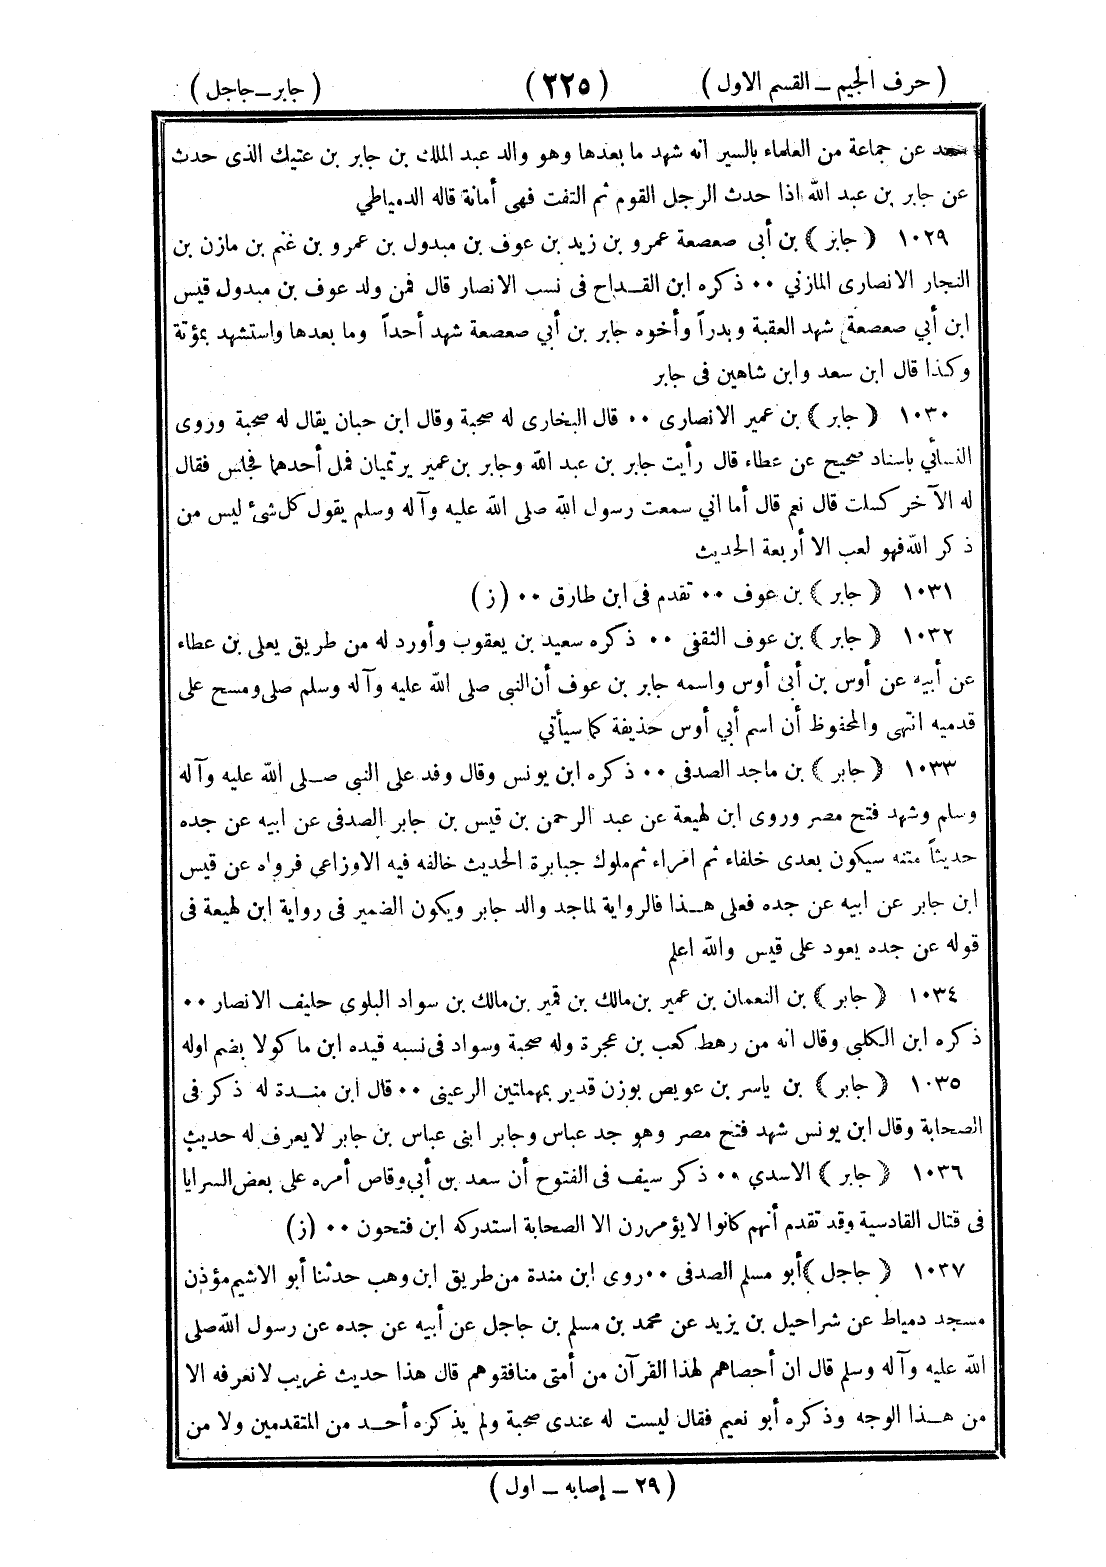 ( حرف الجيم ــ القسم الاول )
( ٢٢٥ )
( جابر ــ جاجل )
عن جماعة من العلماء بالسير انه شهد ما بعدها وهو والد عبد الملك بن جابر بن عتيك الذى حدث
عن جابر بن عبد الله اذا حدث الرجل القوم ثم التفت فهى أمانة قاله الدمياطي
١٠٢٩ ﴿ جابر ﴾ بن أبى صعصعة عمرو بن زيد بن عوف بن مبدول بن عمرو بن غنم بن مازن بن
النجار الانصارى المازني ٠٠ ذكره ابن القـداح فى نسب الانصار قال فمن ولد عوف بن مبدول قيس
ابن أبي صعصعة شهد العقبة وبدراً وأخوه جابر بن أبي صعصعة شهد أحداً وما بعدها واستشهد بمؤتة
وكذا قال ابن سعد وابن شاهين فى جابر
١٠٣٠ ﴿ جابر ﴾ بن عمير الانصارى ٠٠ قال البخارى له صحبة وقال ابن حبان يقال له صحبة وروى
النسائي باسناد صحيح عن عطاء قال رأيت جابر بن عبد الله وجابر بن عمير يرتميان فمل أحدهما فجلس فقال
له الآخر كسلت قال نعم قال أما اني سمعت رسول الله صلى الله عليه وآله وسلم يقول كل شئ ليس من
ذكر الله فهو لعب الا أربعة الحديث
١٠٣١ ﴿ جابر ﴾ بن عوف ٠٠ تقدم فى ابن طارق ٠٠ (ز)
١٠٣٢ ﴿ جابر ﴾ بن عوف الثقفى ٠٠ ذكره سعيد بن يعقوب وأورد له من طريق يعلى بن عطاء
عن أبيه عن أوس بن أبى أوس واسمه جابر بن عوف أن النبى صلى الله عليه وآله وسلم صلى ومسح على
قدميه انتهى والمحفوظ أن اسم أبي أوس حذيفة كما سيأتي
١٠٣٣ ﴿ جابر ﴾ بن ماجد الصدفى ٠٠ ذكره ابن يونس وقال وفد على النبى صـلى الله عليه وآله
وسلم وشهد فتح مصر وروى ابن لهيعة عن عبد الرحمن بن قيس بن جابر الصدفى عن ابيه عن جده
حديثاً متنه سيكون بعدى خلفاء ثم امراء ثم ملوك جبابرة الحديث خالفه فيه الاوزاعي فرواه عن قيس
ابن جابر عن ابيه عن جده فعلى هـذا فالرواية لماجد والد جابر ويكون الضمير فى رواية ابن لهيعة فى
قوله عن جده يعود على قيس والله اعلم
١٠٣٤ ﴿ جابر ﴾ بن النعمان بن عمير بن مالك بن قمير بن مالك بن سواد البلوى حليف الانصار ٠٠
ذكره ابن الكلبى وقال انه من رهط كعب بن عجرة وله صحبة وسواد فى نسبه قيده ابن ماكولا بضم اوله
١٠٣٥ ﴿ جابر ﴾ بن ياسر بن عويص بوزن قدير بمهملتين الرعينى ٠٠ قال ابن منـدة له ذكر فى
الصحابة وقال ابن يونس شهد فتح مصر وهو جد عباس وجابر ابنى عباس بن جابر لا يعرف له حديث
١٠٣٦ ﴿ جابر ﴾ الاسدي ٠٠ ذكر سيف فى الفتوح أن سعد بن أبي وقاص أمره على بعض السرايا
فى قتال القادسية وقد تقدم أنهم كانوا لا يؤمررن الا الصحابة استدركه ابن فتحون ٠٠ (ز)
١٠٣٧ ﴿ جاجل ﴾ أبو مسلم الصدفى ٠٠ روى ابن مندة من طريق ابن وهب حدثنا أبو الاشيم مؤذن
مسجد دمياط عن شراحيل بن يزيد عن محمد بن مسلم بن جاجل عن أبيه عن جده عن رسول الله صلى
الله عليه وآله وسلم قال ان أحصاهم لهذا القرآن من أمتى منافقوهم قال هذا حديث غريب لا نعرفه الا
من هـذا الوجه وذكره أبو نعيم فقال ليست له عندى صحبة ولم يذكره أحـد من المتقدمين ولا من
( ٢٩ ــ إصابه ــ اول )